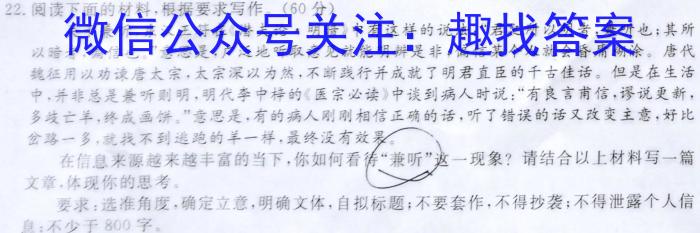 22. 阅读下面的材料,根据要求写作。(60 分)
微信公众号关注：趣找答案
魏征用以劝谏唐太宗,太宗深以为然,不断践行并成就了明君直臣的千古佳话。但是在生活
中,并非总是兼听则明,明代李中梓的《医宗必读》中谈到病人时说:“有良言甫信,谬说更新,
多歧亡羊,终成画饼。”意思是,有的病人刚刚相信正确的话,听了错误的话又改变主意,好比
岔路一多,就找不到逃跑的羊一样,最终没有效果。
在信息来源越来越丰富的当下,你如何看待“兼听”这一现象？请结合以上材料写一篇
文章,体现你的思考。
要求:选准角度,确定立意,明确文体,自拟标题;不要套作,不得抄袭;不得泄露个人信
息;不少于 800 字。